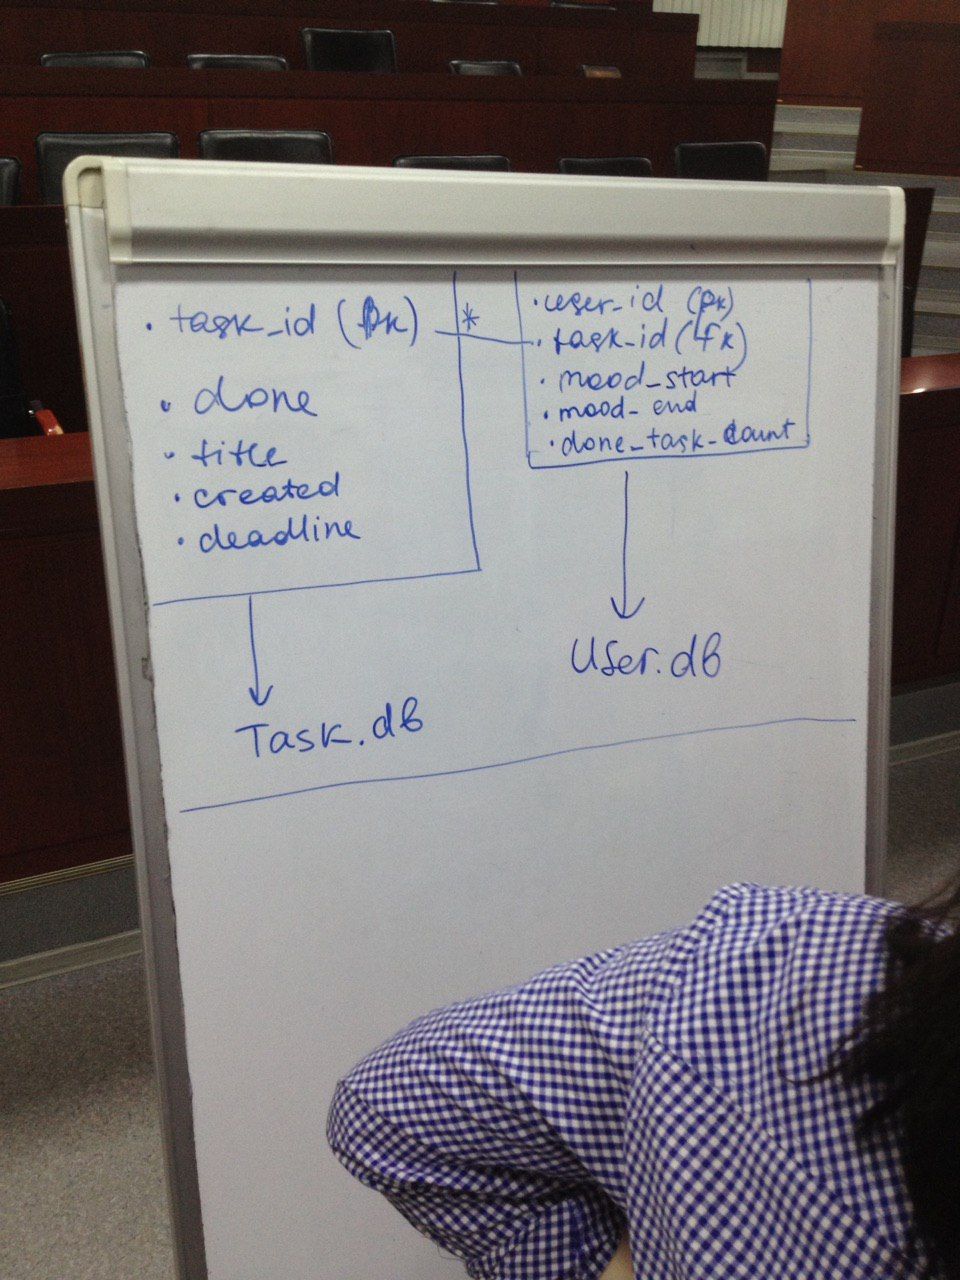 • task_id (pk)
• done
• title
• created
• deadline
Task.db
*
• user_id (pk)
• task_id (fk)
• mood_start
• mood_end
• done_task_count
User.db